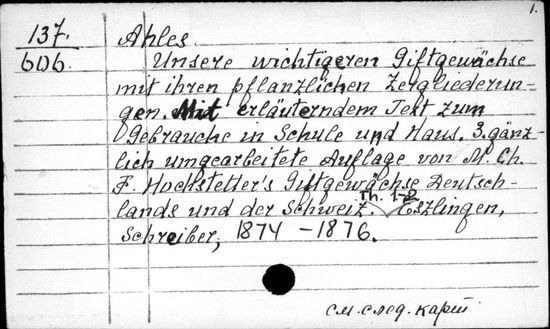 1.
137.
606.
Ahles
Unsere wichtigeren Giftgewächse
mit ihren pflanzlichen Zergliederun-
gen. Mit erläuterndem Text zum
Gebrauche in Schule und Haus. 3. gänz-
lich umgearbeitete Auflage von M. Ch.
F. Hochstetter's Giftgewächse Deutsch-
lands und der Schweiz. Th. 1-2
Eszlingen,
Schreiber, 1874 - 1876.
см. след. карт